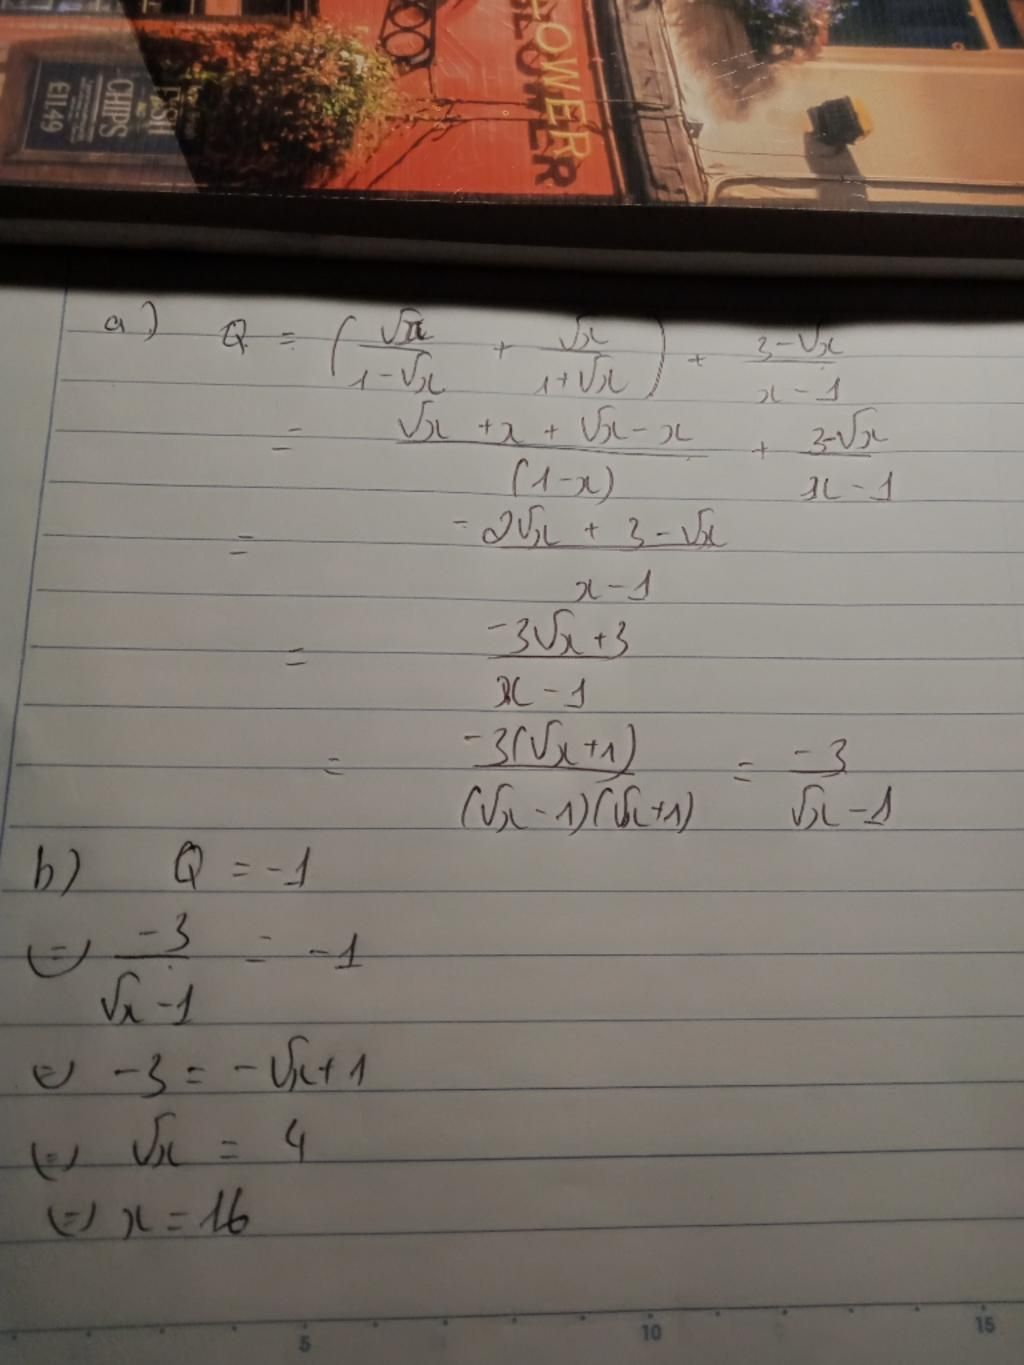 LOWER
FISH
CHIPS
£11.49
a) Q = (√x/(1-√x) + √x/(1+√x)) + (3-√x)/(x-1)
= (√x + x + √x - x)/((1-x)) + (3-√x)/(x-1)
= (-2√x + 3 - √x)/(x-1)
= (-3√x+3)/(x-1)
= (-3(√x+1))/((√x-1)(√x+1)) = -3/(√x-1)
b) Q = -1
(=) -3/(√x-1) = -1
(=) -3 = -√x+1
(=) √x = 4
(=) x = 16
5 10 15